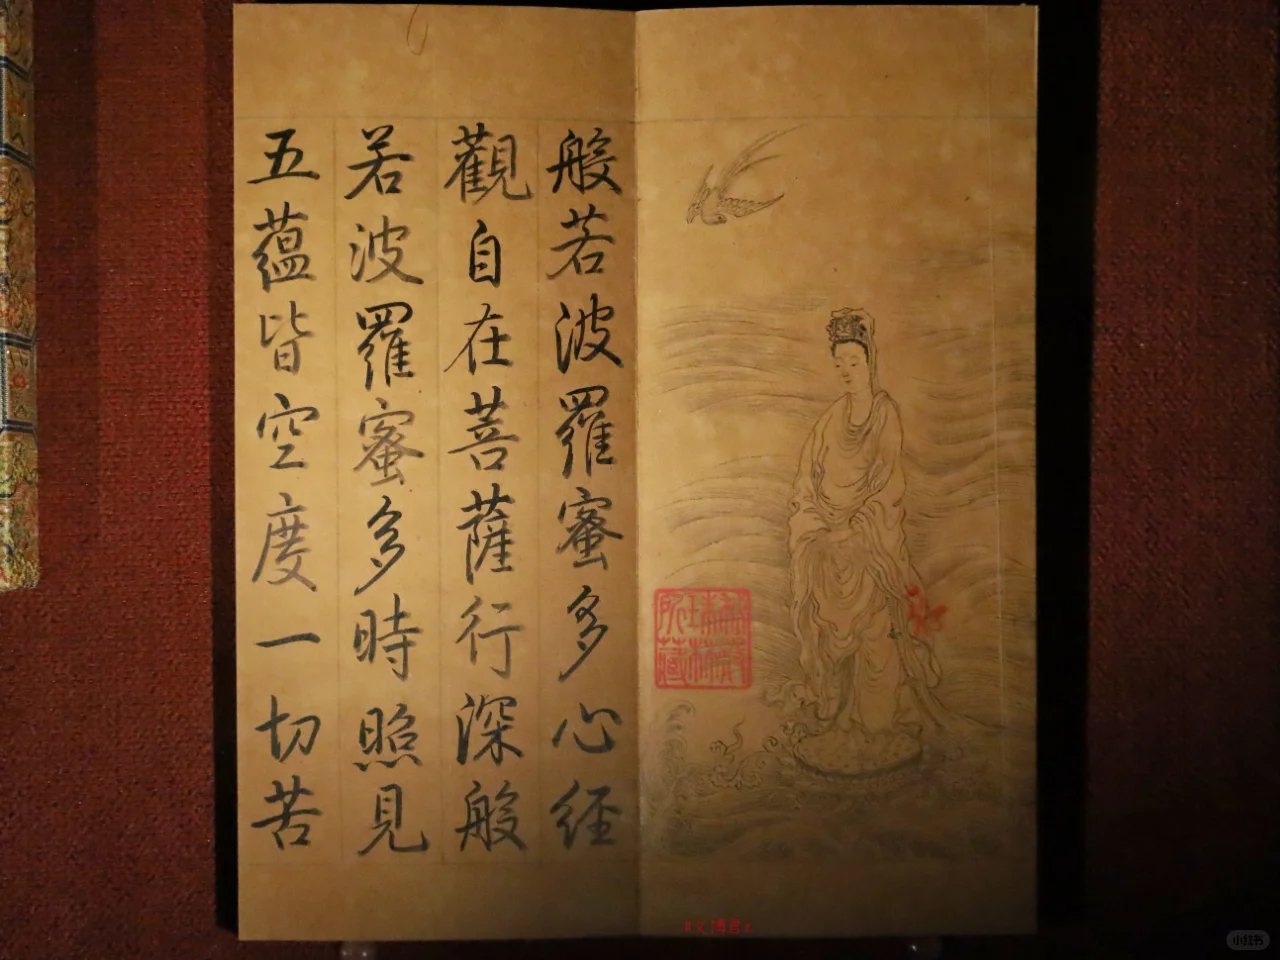 般若波羅蜜多心經
觀自在菩薩行深般
若波羅蜜多時照見
五蘊皆空度一切苦
小红书